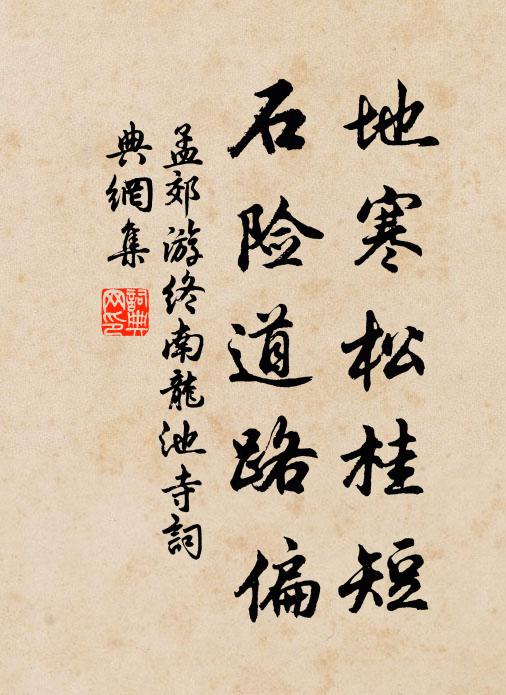 地寒松桂短
石险道路偏
孟郊游终南龍池寺詞
典網集
詞典网印